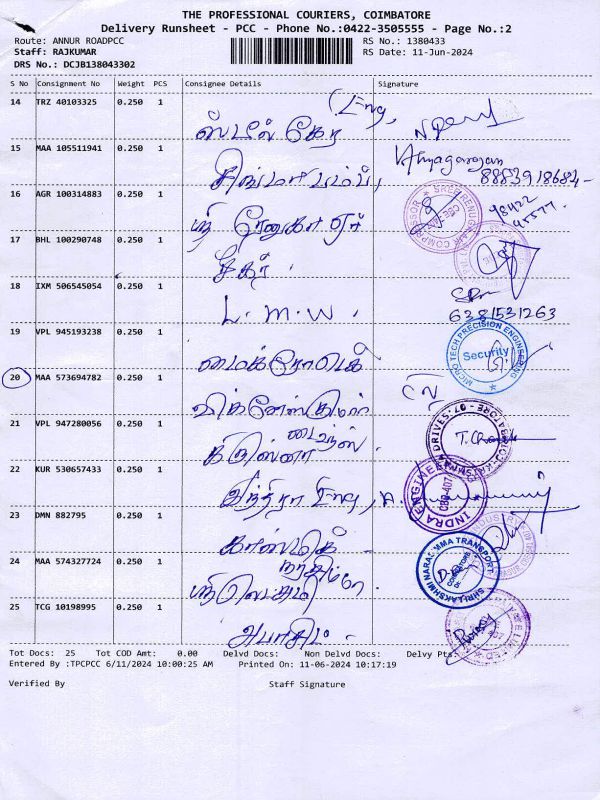 THE PROFESSIONAL COURIERS, COIMBATORE
Delivery Runsheet - PCC - Phone No.:0422-3505555 - Page No.:2
Route: ANNUR ROADPCC
Staff: RAJKUMAR
DRS No.: DCJB138043302
RS No.: 1380433
RS Date: 11-Jun-2024
S No Consignment No Weight PCS Consignee Details Signature
14 TRZ 40103325 0.250 1
ஸ்டீல் கேர (Eng,
15 MAA 105511941 0.250 1
சிங்மா பம்ப்,
Athyagarajan
8883918684-
16 AGR 100314883 0.250 1
ஸ்ரீ ரேணுகா ஏர்
SREE RENUGA AIR COMPRESSOR
98422
17 BHL 100290748 0.250 1
18 IXM 506545054 0.250 1
L.M.W.
6381531263
19 VPL 945193238 0.250 1
மைக்ரோடெக்
MICRO TECH PRECISION ENGINEERING
Security
20 MAA 573694782 0.250 1
விக்னேஸ்குமார்
21 VPL 947280056 0.250 1
கிருஸ்னா டைவ்ஸ்
22 KUR 530657433 0.250 1
இந்திரா Eng,
INDRA ENGINEE
CBE-407
23 DMN 882795 0.250 1
24 MAA 574327724 0.250 1
ஸ்ரீ லெட்சுமி நரசிம்மா
SHRI LAKSHMI NARASIMMA TRANSPORT
25 TCG 10198995 0.250 1
Tot Docs: 25 Tot COD Amt: 0.00 Delvd Docs: Non Delvd Docs: Delvy Pts:
Entered By :TPCPCC 6/11/2024 10:00:25 AM Printed On: 11-06-2024 10:17:19
Verified By Staff Signature